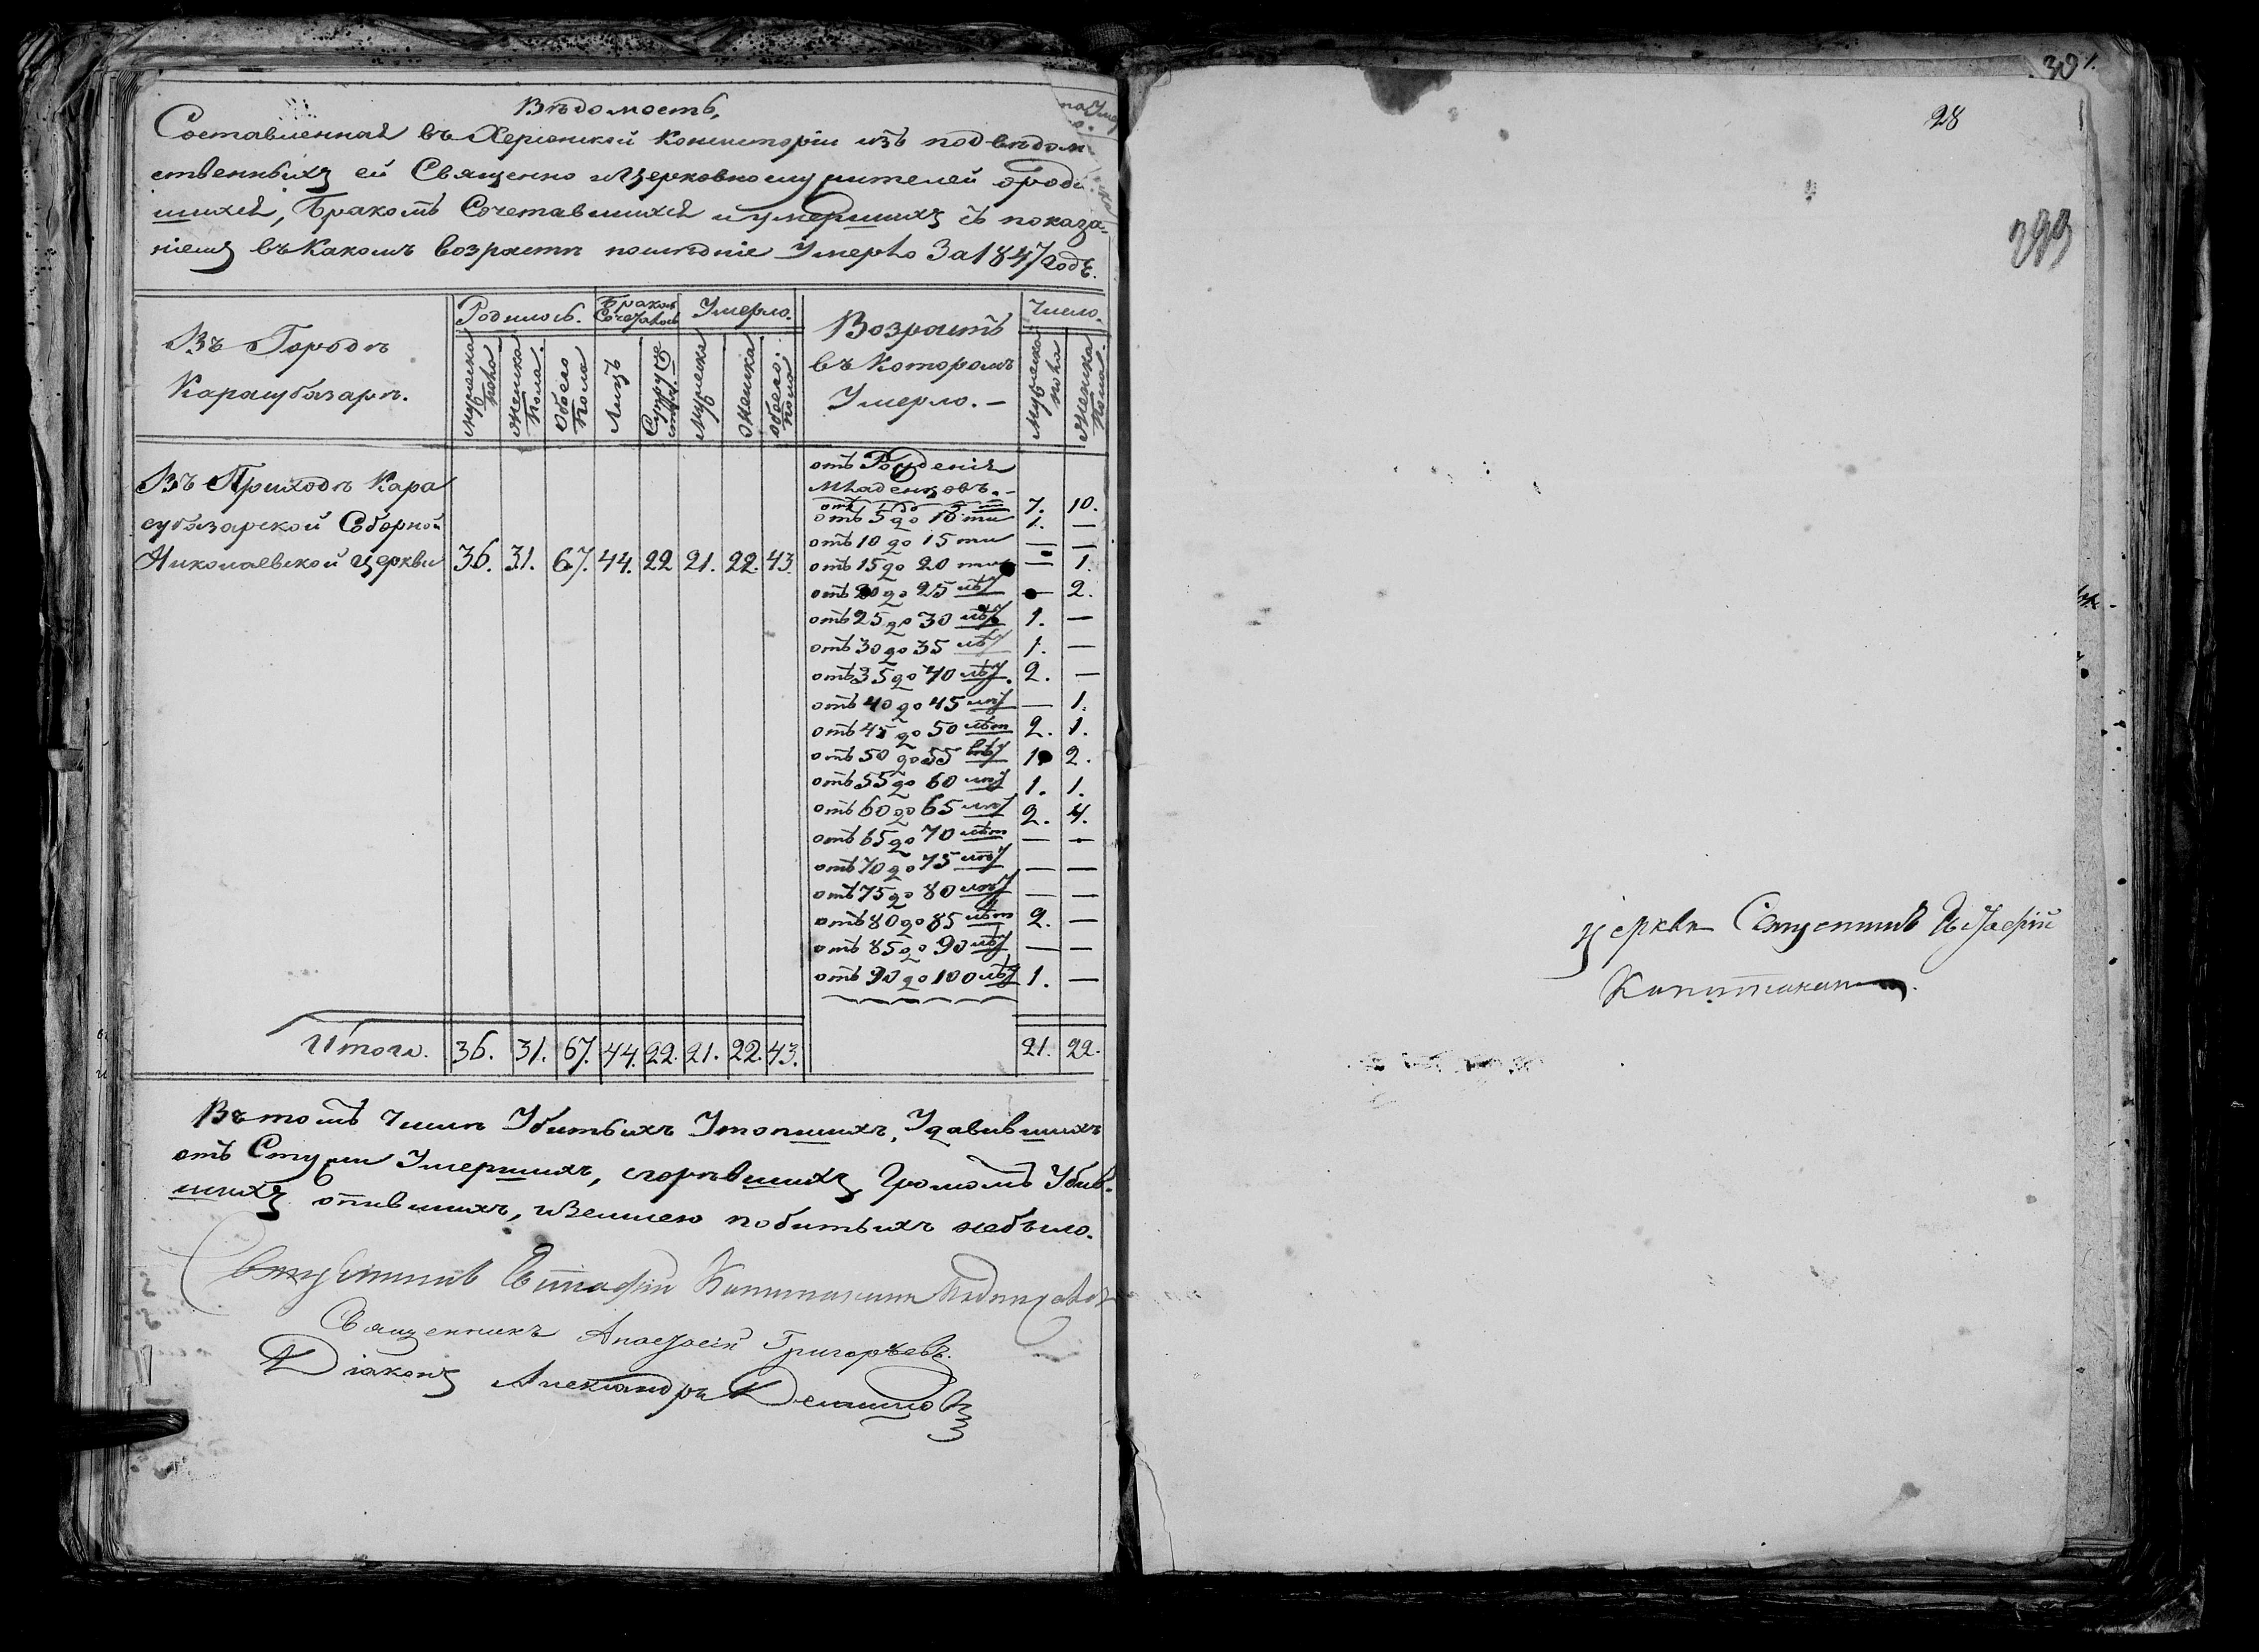 Вѣдомость,
Составленная въ Херсонской Консисторіи изъ подвѣдом
ственныхъ ей Священно и Церковнослужителей о роди
шихся, Бракомъ Сочетавшихся и умершихъ съ показа-
ніемъ въ Какомъ возрастѣ послѣдніе Умерло За 1847 годъ.
Въ Городѣ
Карасубазарѣ.
Родилось.
Бракомъ
Сочеталось
Умерло.
Возрастъ
въ Которомъ
Умерло. —
Число.
Мужеска
пола
Женска
пола.
Обоего
пола
Лицъ
Супруже
ствъ.
Мужеска
Женска
обоего
пола
Мужеска
пола
Женска
пола.
Въ Приходѣ Кара
субазарской Соборной
Николаевской церкви 36. 31. 67. 44. 22 21. 22. 43.
отъ Рожденія
Младенцовъ. —
7. 10.
отъ 5 до 10 ти 1. —
отъ 10 до 15 ти — —
отъ 15 до 20 ти — 1.
отъ 20 до 25 лѣт — 2.
отъ 25 до 30 лѣт 1. —
отъ 30 до 35 лѣт 1. —
отъ 35 до 40 лѣт. 2. —
отъ 40 до 45 лѣт — 1.
отъ 45 до 50 лѣт 2. 1.
отъ 50 до 55 лѣт 1 2.
отъ 55 до 60 лѣт 1. 1.
отъ 60 до 65 лѣт 2. 4.
отъ 65 до 70 лѣт — —
отъ 70 до 75 лѣт — —
отъ 75 до 80 лѣт — —
отъ 80 до 85 лѣт 2. —
отъ 85 до 90 лѣт — —
отъ 90 до 100 лѣт 1. —
Итого. 36. 31. 67. 44. 22. 21. 22. 43. 21. 22.
Въ томъ числѣ Убитыхъ Утопшихъ, Удавившихъ
отъ Стужи Умершихъ, сгорѣвшихъ Громомъ Убив-
шихъ опившихъ, и Землею побитыхъ небыло.
Священникъ Григорьевъ.
Діаконъ Александръ
301.
28
299
церкви